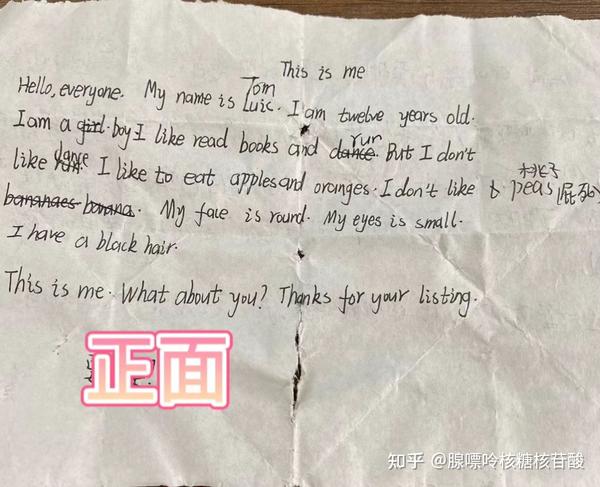 This is me
Hello, everyone. My name is Tom Luic. I am twelve years old.
I am a girl. boy I like read books and dance. run But I don't
like run. dance I like to eat apples and oranges. I don't like peas
bananaes banana. My face is round. My eyes is small.
I have a black hair.
This is me. What about you? Thanks for your listing.
正面
知乎 @腺嘌呤核糖核苷酸